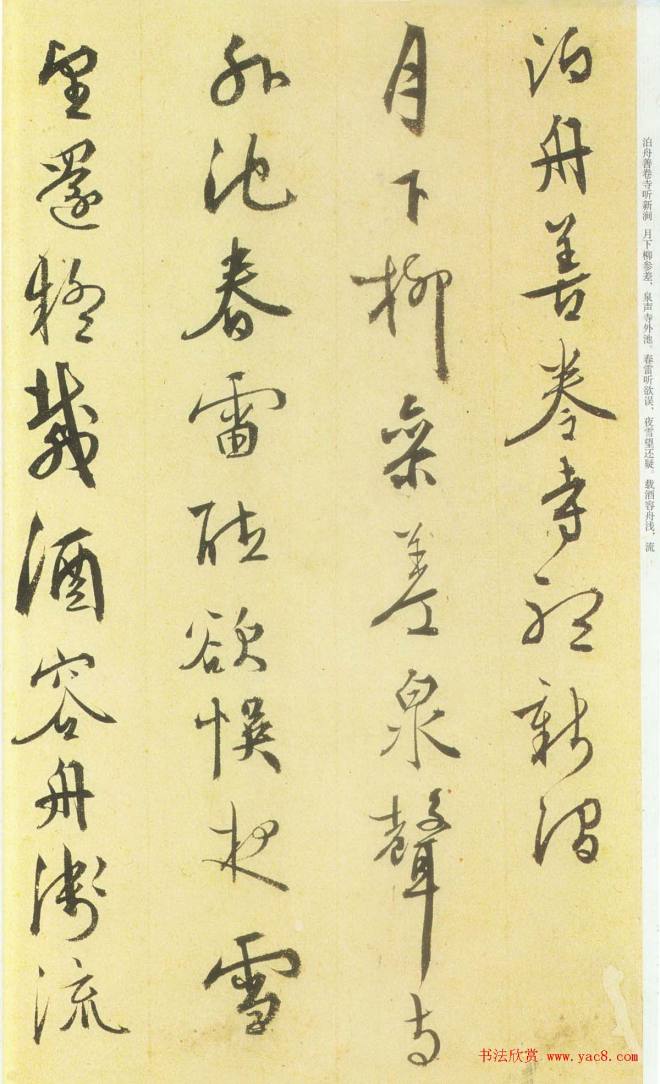 泊舟善卷寺聽新澗
月下柳參差泉聲寺
外池春雷聽欲悞夜雪
望還疑載酒容舟淺流
泊舟善卷寺听新涧 月下柳参差，泉声寺外池。春雷听欲误，夜雪望还疑。载酒容舟浅，流
书法欣赏 www.yac8.com